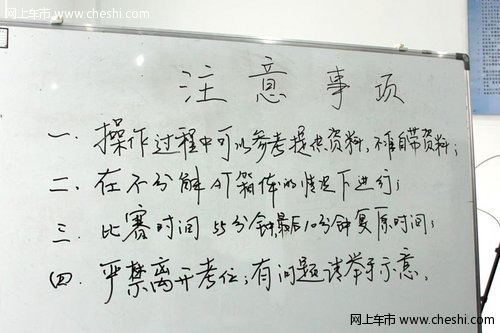 网上车市 www.cheshi.com
注意事项
一、操作过程中可以参考提供资料,不准自带资料;
二、在不分解AT箱体的情况下进行;
三、比赛时间 55分钟,最后10分钟复原时间;
四、严禁离开考位;有问题请举手示意。
网上车市 www.cheshi.com